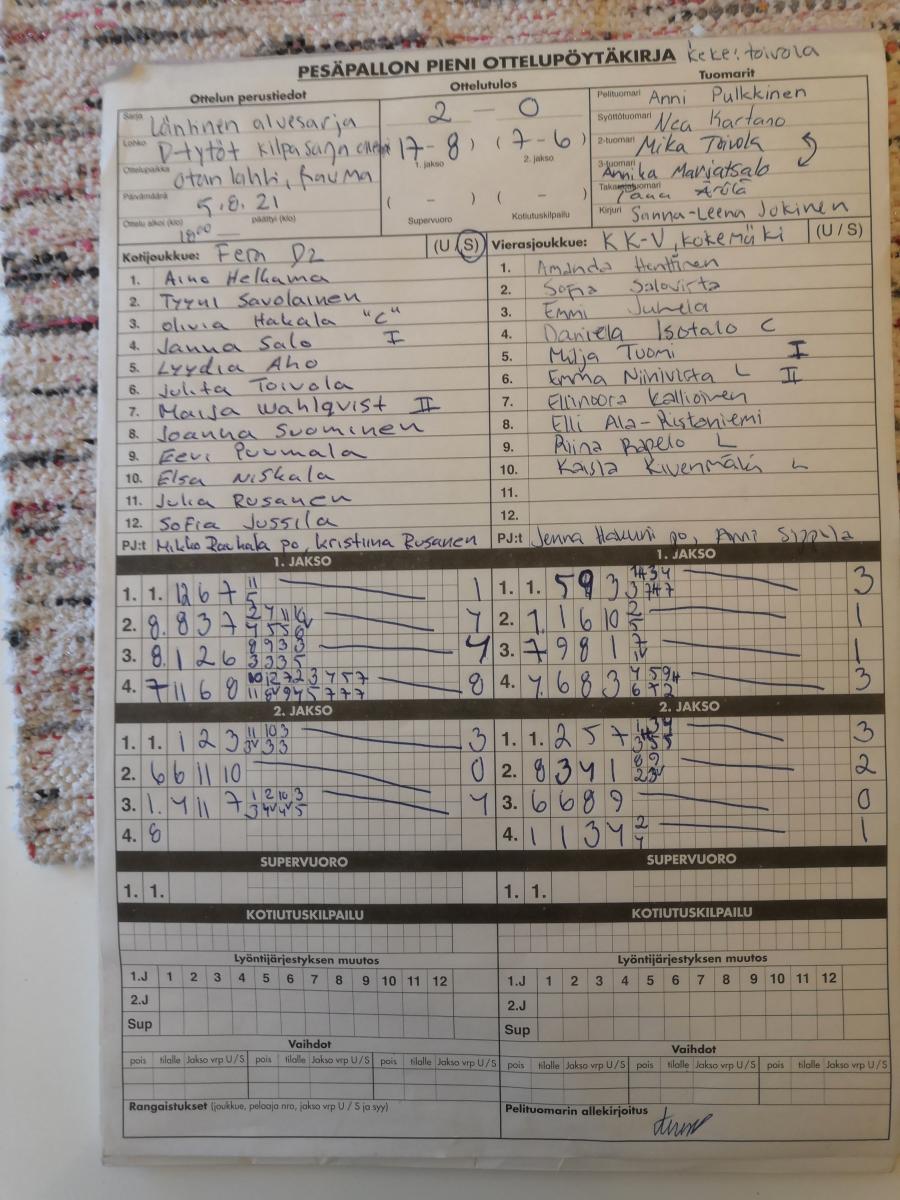 PESÄPALLON PIENI OTTELUPÖYTÄKIRJA keke: toivola
Ottelun perustiedot
Ottelutulos
Tuomarit
Sarja Läntinen aluesarja
Lohko D-tytöt kilpasarja
Ottelupaikka Otanlahti, Rauma
Päivämäärä 5.8.21
Ottelu alkoi (klo) 18⁰⁰ päättyi (klo) —
2 — 0
17-8 ) ( 7-6 )
1. jakso 2. jakso
( - ) ( - )
Supervuoro Kotiutuskilpailu
Pelituomari Anni Pulkkinen
Syöttötuomari Nea Kartano
2-tuomari Mika Toivola
3-tuomari Annika Marjatsalo
Takarajatuomari Ärölä
Kirjuri Sanna-Leena Jokinen
Kotijoukkue: Fera D2 (U / S)
1. Aino Helkama
2. Tyyni Savolainen
3. Olivia Hakala "C"
4. Janna Salo I
5. Lyydia Aho
6. Julita Toivola
7. Maija Wahlqvist II
8. Joanna Suominen
9. Eevi Puumala
10. Elsa Niskala
11. Julia Rusanen
12. Sofia Jussila
PJ:t Mikko Rauhala po, kristiina Rusanen
Vierasjoukkue: KK-V, kokemäki (U / S)
1. Amanda Henttinen
2. Sofia Salovirta
3. Emmi Juhela
4. Daniela Isotalo C
5. Milja Tuomi I
6. Emma Niinivirta L II
7. Ellinoora Kallioinen
8. Elli Ala-Ristoniemi
9. Riina Rapelo L
10. Kaisla Kivenmäki L
11.
12.
PJ:t Jenna po, Anni
1. JAKSO
1. 1. 12 6 7 11 5 1
2. 8. 8 3 7 4
3. 8. 1 2 6 8 9 3 3 3 3 3 5 4
4. 7 11 6 8 8
2. JAKSO
1. 1. 1 2 3 11 10 3 3v 3 3 3
2. 6 6 11 10 0
3. 1. 4 11 7 1 2 10 3 3 4v 4v 5 4
4. 8
SUPERVUORO
1. 1.
KOTIUTUSKILPAILU
1. JAKSO
1. 1. 5 9 3 3
2. 7. 1 6 10 2 5 1
3. 7 9 8 1 1
4. 4. 6 8 3 3
2. JAKSO
1. 1. 2 5 7 3
2. 8 3 4 1 8 9 2 3v 2
3. 6 6 8 9 0
4. 1 1 3 4 2 4 1
SUPERVUORO
1. 1.
KOTIUTUSKILPAILU
Lyöntijärjestyksen muutos
1.J 1 2 3 4 5 6 7 8 9 10 11 12
2.J
Sup
Vaihdot
pois tilalle Jakso vrp U / S pois tilalle Jakso vrp U / S pois tilalle Jakso vrp U / S
Rangaistukset (joukkue, pelaaja nro, jakso vrp U / S ja syy)
Lyöntijärjestyksen muutos
1.J 1 2 3 4 5 6 7 8 9 10 11 12
2.J
Sup
Vaihdot
pois tilalle Jakso vrp U / S pois tilalle Jakso vrp U / S pois tilalle Jakso vrp U / S
Pelituomarin allekirjoitus